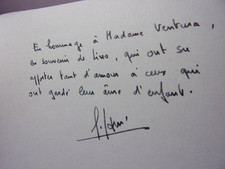 En hommage à Madame Ventura,
en souvenir de Lino, qui ont su
apporter tant d'amour à ceux qui
ont gardé leur âme d'enfant.